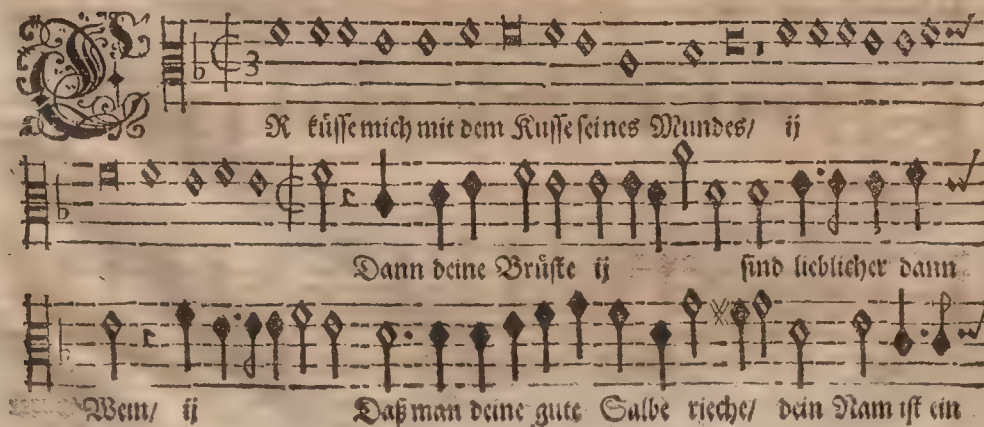 ER küsse mich mit dem Kusse seines Mundes/ ij
Dann deine Brüste ij sind lieblicher dann
Wein/ ij Daß man deine gute Salbe rieche/ dein Nam ist ein